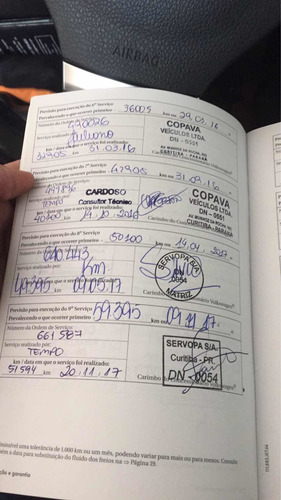 AIRBAG
Previsão para execução do 6º Serviço
Prevalecendo o que ocorrer primeiro 36005 km ou 29.03.16
Número da Ordem de Serviço:
420026
Serviço realizado por:
Juliano
km / data em que o serviço foi realizado:
32905 km 31.03.16
COPAVA
VEÍCULOS LTDA
DN - 0551
CURITIBA - PARANÁ
Previsão para execução do 7º Serviço
Prevalecendo o que ocorrer primeiro 47905 km ou 31.03.16
CARDOSO
Consultor Técnico
TEMPO
km / data em que o serviço foi realizado:
14.10.2016
COPAVA
VEÍCULOS LTDA
DN - 0551
CURITIBA-PARANÁ
Previsão para execução do 8º Serviço
Prevalecendo o que ocorrer primeiro 50100 km ou 14.04.2017
640443
Serviço realizado por:
Km
km / data em que o serviço foi realizado:
44395 09.05.17
SERVOPA S/A
0054
MATRIZ
Carimbo do Concessionário Volkswagen
Previsão para execução do 9º Serviço
Prevalecendo o que ocorrer primeiro 59395 km ou 09.11.17.
Número da Ordem de Serviço:
661587
Serviço realizado por:
TEMPO
km / data em que o serviço foi realizado:
51594 km 20.11.17
SERVOPA S/A.
Curitiba - PR
DN - 0054
Carimbo do Concessionário Volkswagen
admissível uma tolerância de 1.000 km ou um mês, podendo variar para mais ou para menos. Consulte
também a data para substituição do fluido dos freios na ⇒ Página 19.
ção e garantia